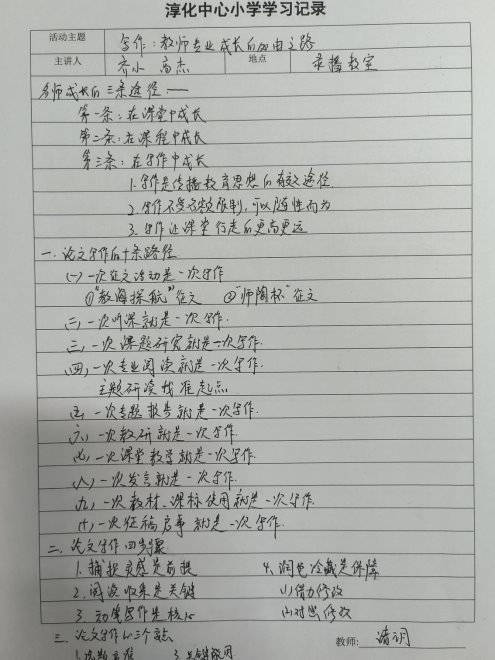 淳化中心小学学习记录
活动主题 写作:教师专业成长的必由之路
主讲人 齐小 高杰 地点 录播教室
名师成长的三条途径——
第一条:在课堂中成长
第二条:在课程中成长
第三条:在写作中成长
1.写作是传播教育思想的有效途径
2.写作不受次数限制,可以随性而为
3.写作让课堂行走的更高更远
一.论文写作的十条路径
(一)一次征文活动是一次写作
①“教海探航”征文 ②“师陶杯”征文
(二)一次听课就是一次写作.
(三)一次课题研究就是一次写作.
(四)一次专业阅读就是一次写作.
主题研读找准起点
(五)一次专题报告就是一次写作.
(六)一次教研就是一次写作.
(七)一次课堂教学就是一次写作.
(八)一次发言就是一次写作.
(九)一次教材、课标使用就是一次写作.
(十)一次征稿启事就是一次写作.
二.论文写作四步骤
1.捕捉灵感是前提 4.润色冷藏是保障
2.阅读收集是关键 (1)借力修改
3.动笔写作是核心 (2)对照修改
三.论文写作的三个点
教师:
1.选题 3.关键